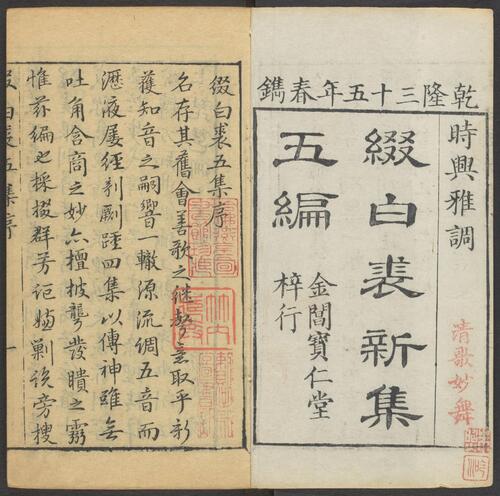 乾隆三十五年春鐫
時興雅調
綴白裘新集
五編
金閶寶仁堂
梓行
清歌妙舞
綴白裘五集序
名存其舊會善歌之継聲意取乎新
獲知音之嗣響一轍源流調五音而
瀝液屢經剞劂踵四集以傳神雖無
吐角含商之妙亦擅披聾發瞶之竅
惟茲編也採掇群芳詎嫌剿説旁搜
綴白裘五集序 一